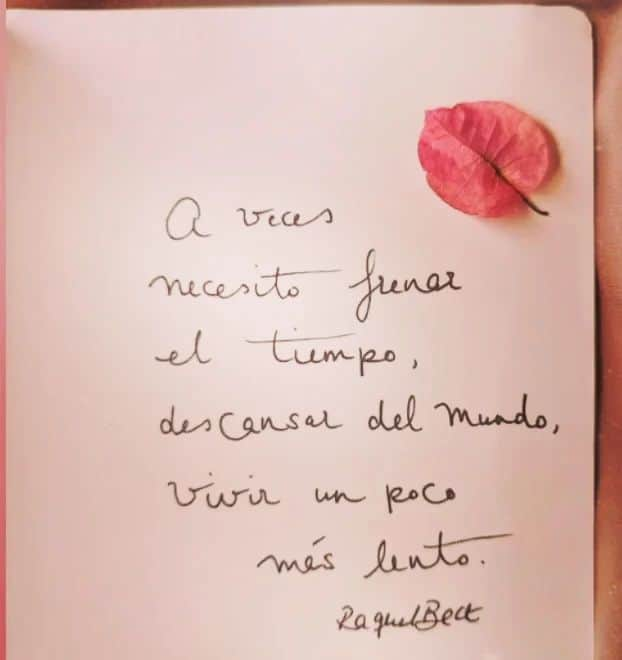 A veces
necesito frenar
el tiempo,
descansar del mundo,
vivir un poco
más lento.
RaquelBeck